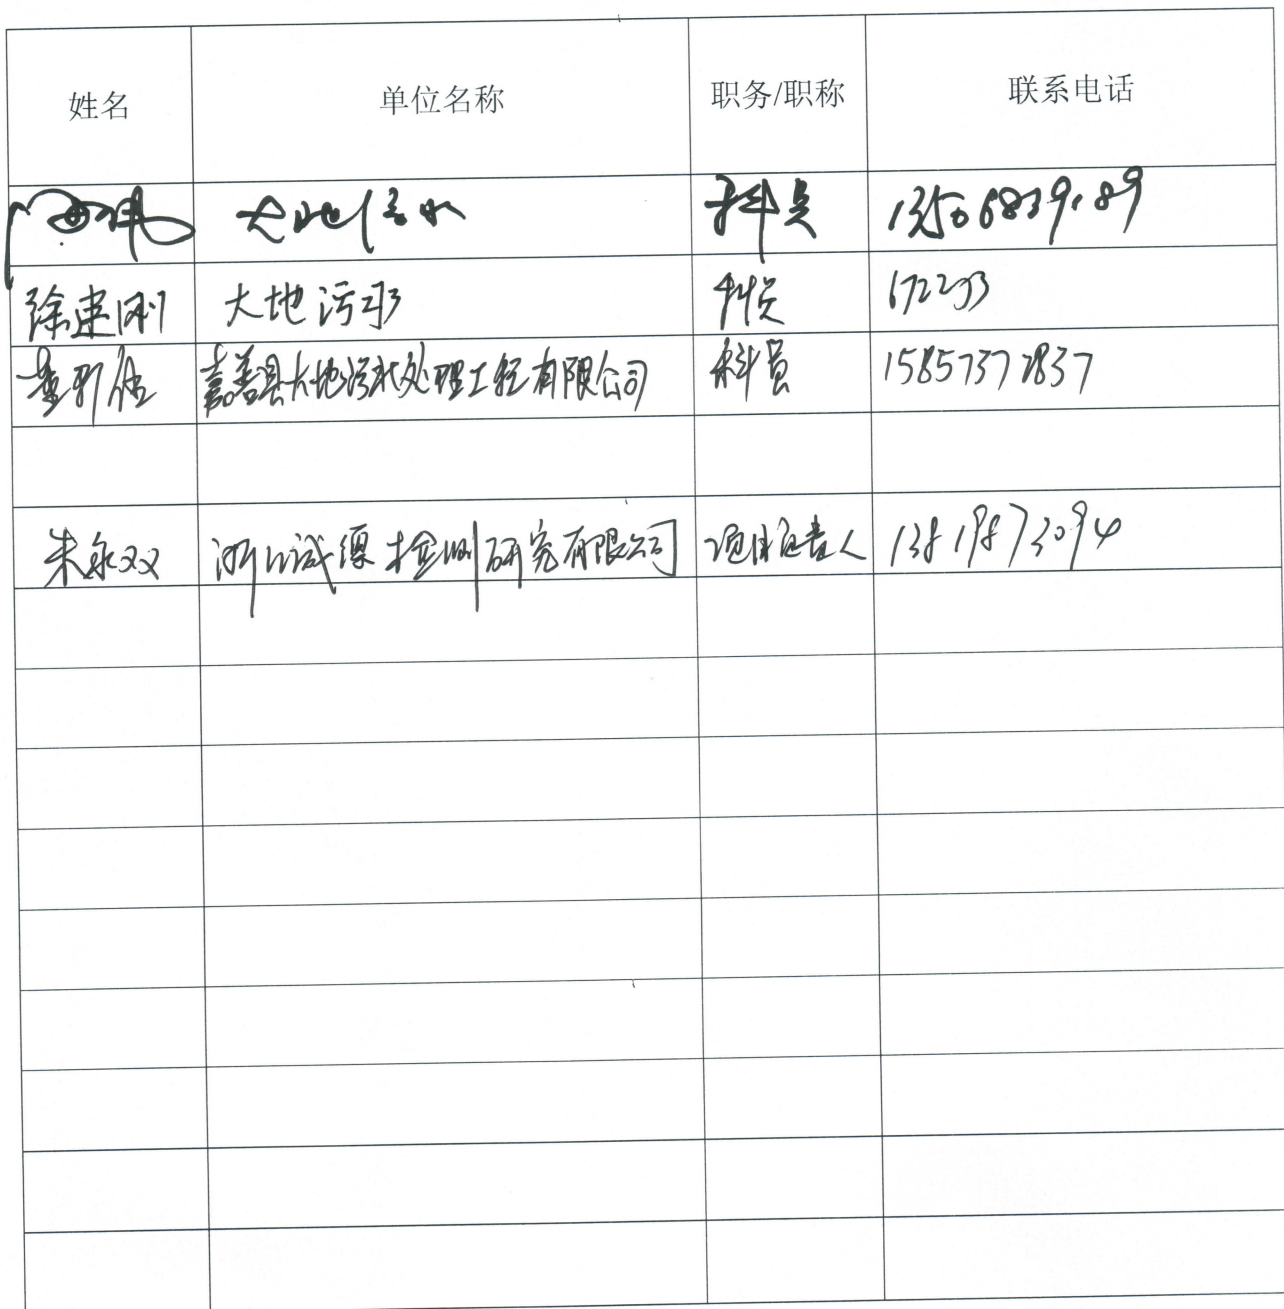 姓名 单位名称 职务/职称 联系电话
大地污水 科员 13506839189
徐建刚 大地污水 科员 672233
嘉善县大地污水处理工程有限公司 科员 15857372837
朱永双 浙江诚德检测研究有限公司 项目负责人 13819873094